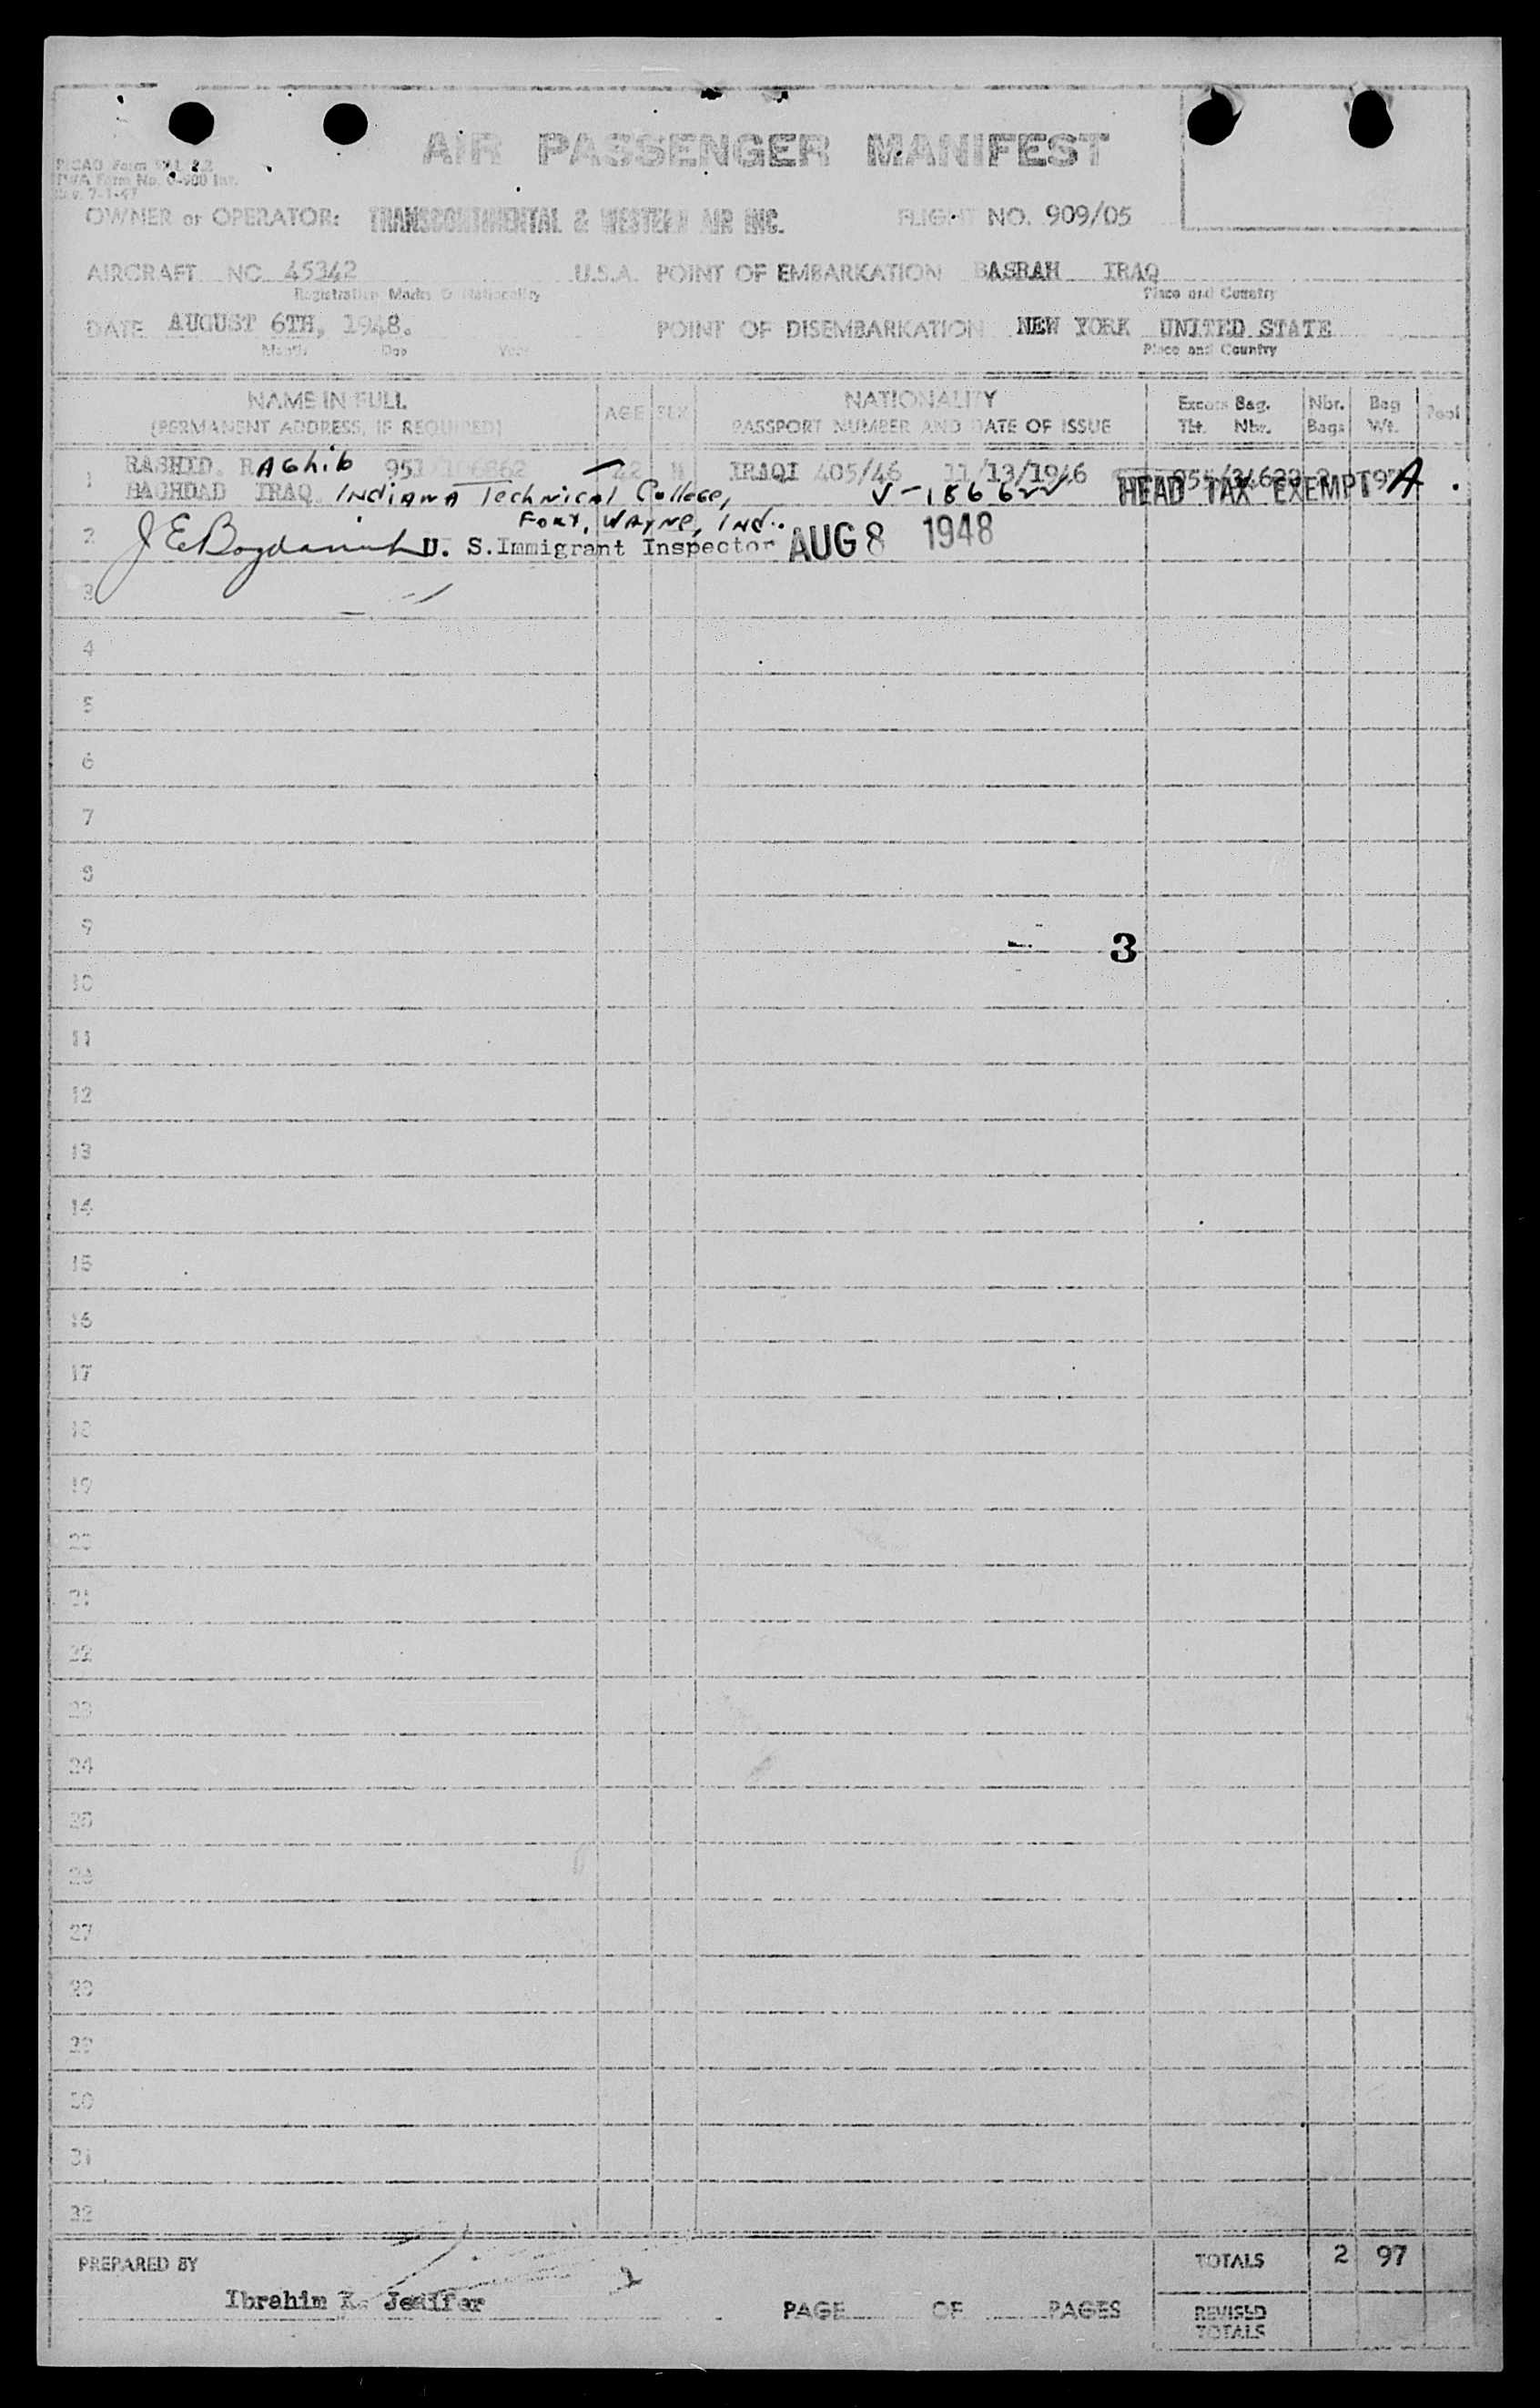 AIR PASSENGER MANIFEST
OWNER or OPERATOR: TRANSCONTINENTAL & WESTERN AIR INC. FLIGHT NO. 909/05
AIRCRAFT NC 45342 U.S.A. POINT OF EMBARKATION BASRAH IRAQ
Registration Marks & Nationality Place and Country
DATE AUGUST 6TH, 1948. POINT OF DISEMBARKATION NEW YORK UNITED STATE
Month Day Year Place and Country
NAME IN FULL AGE SEX NATIONALITY Excess Bag. Nbr. Bag Pool
(PERMANENT ADDRESS, IF REQUIRED) PASSPORT NUMBER AND DATE OF ISSUE Tkt. Nbr. Bags Wt.
1 RASHID. RAGhib 22 M IRAQI 405/46 11/13/1946
BAGHDAD IRAQ INdiANA Technical College, HEAD TAX EXEMPT A
FORT, WAYNe, INd.
2 U. S. Immigrant Inspector AUG 8 1948
3
4
5
6
7
8
9
3
10
11
12
13
14
15
16
17
18
19
20
21
22
23
24
25
26
27
28
29
30
31
32
PREPARED BY TOTALS 2 97
Ibrahim K. Jeaifer
PAGE OF PAGES REVISED
TOTALS